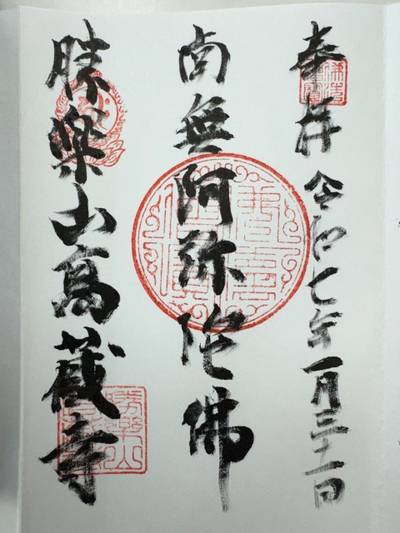 奉拝 令和七年一月三十一日
南無阿弥陀佛
勝樂山高蔵寺